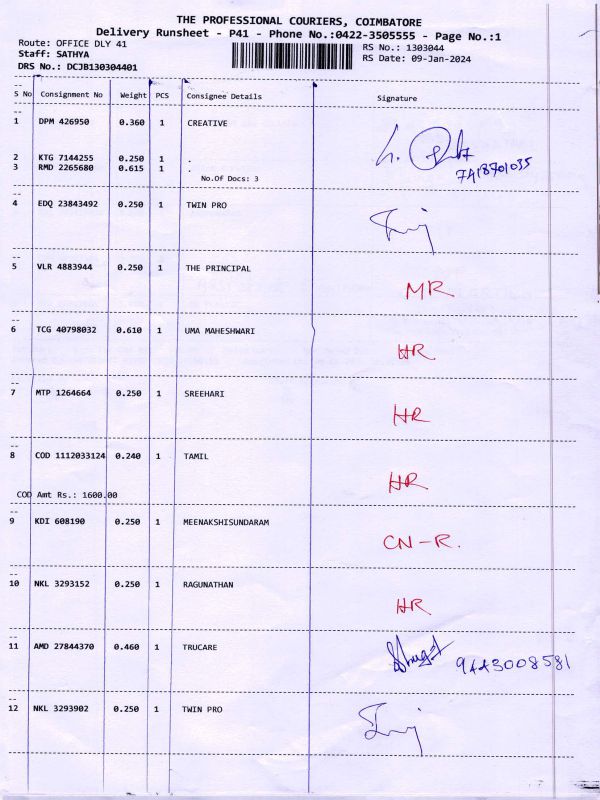 THE PROFESSIONAL COURIERS, COIMBATORE
Delivery Runsheet - P41 - Phone No.:0422-3505555 - Page No.:1
Route: OFFICE DLY 41 RS No.: 1303044
Staff: SATHYA RS Date: 09-Jan-2024
DRS No.: DCJB130304401
S No Consignment No Weight PCS Consignee Details Signature
1 DPM 426950 0.360 1 CREATIVE
2 KTG 7144255 0.250 1 .
3 RMD 2265680 0.615 1 . 7418701035
No.Of Docs: 3
4 EDQ 23843492 0.250 1 TWIN PRO
5 VLR 4883944 0.250 1 THE PRINCIPAL
MR
6 TCG 40798032 0.610 1 UMA MAHESHWARI
HR
7 MTP 1264664 0.250 1 SREEHARI
HR
8 COD 1112033124 0.240 1 TAMIL
HR
COD Amt Rs.: 1600.00
9 KDI 608190 0.250 1 MEENAKSHISUNDARAM
CN-R.
10 NKL 3293152 0.250 1 RAGUNATHAN
HR
11 AMD 27844370 0.460 1 TRUCARE
9443008581
12 NKL 3293902 0.250 1 TWIN PRO